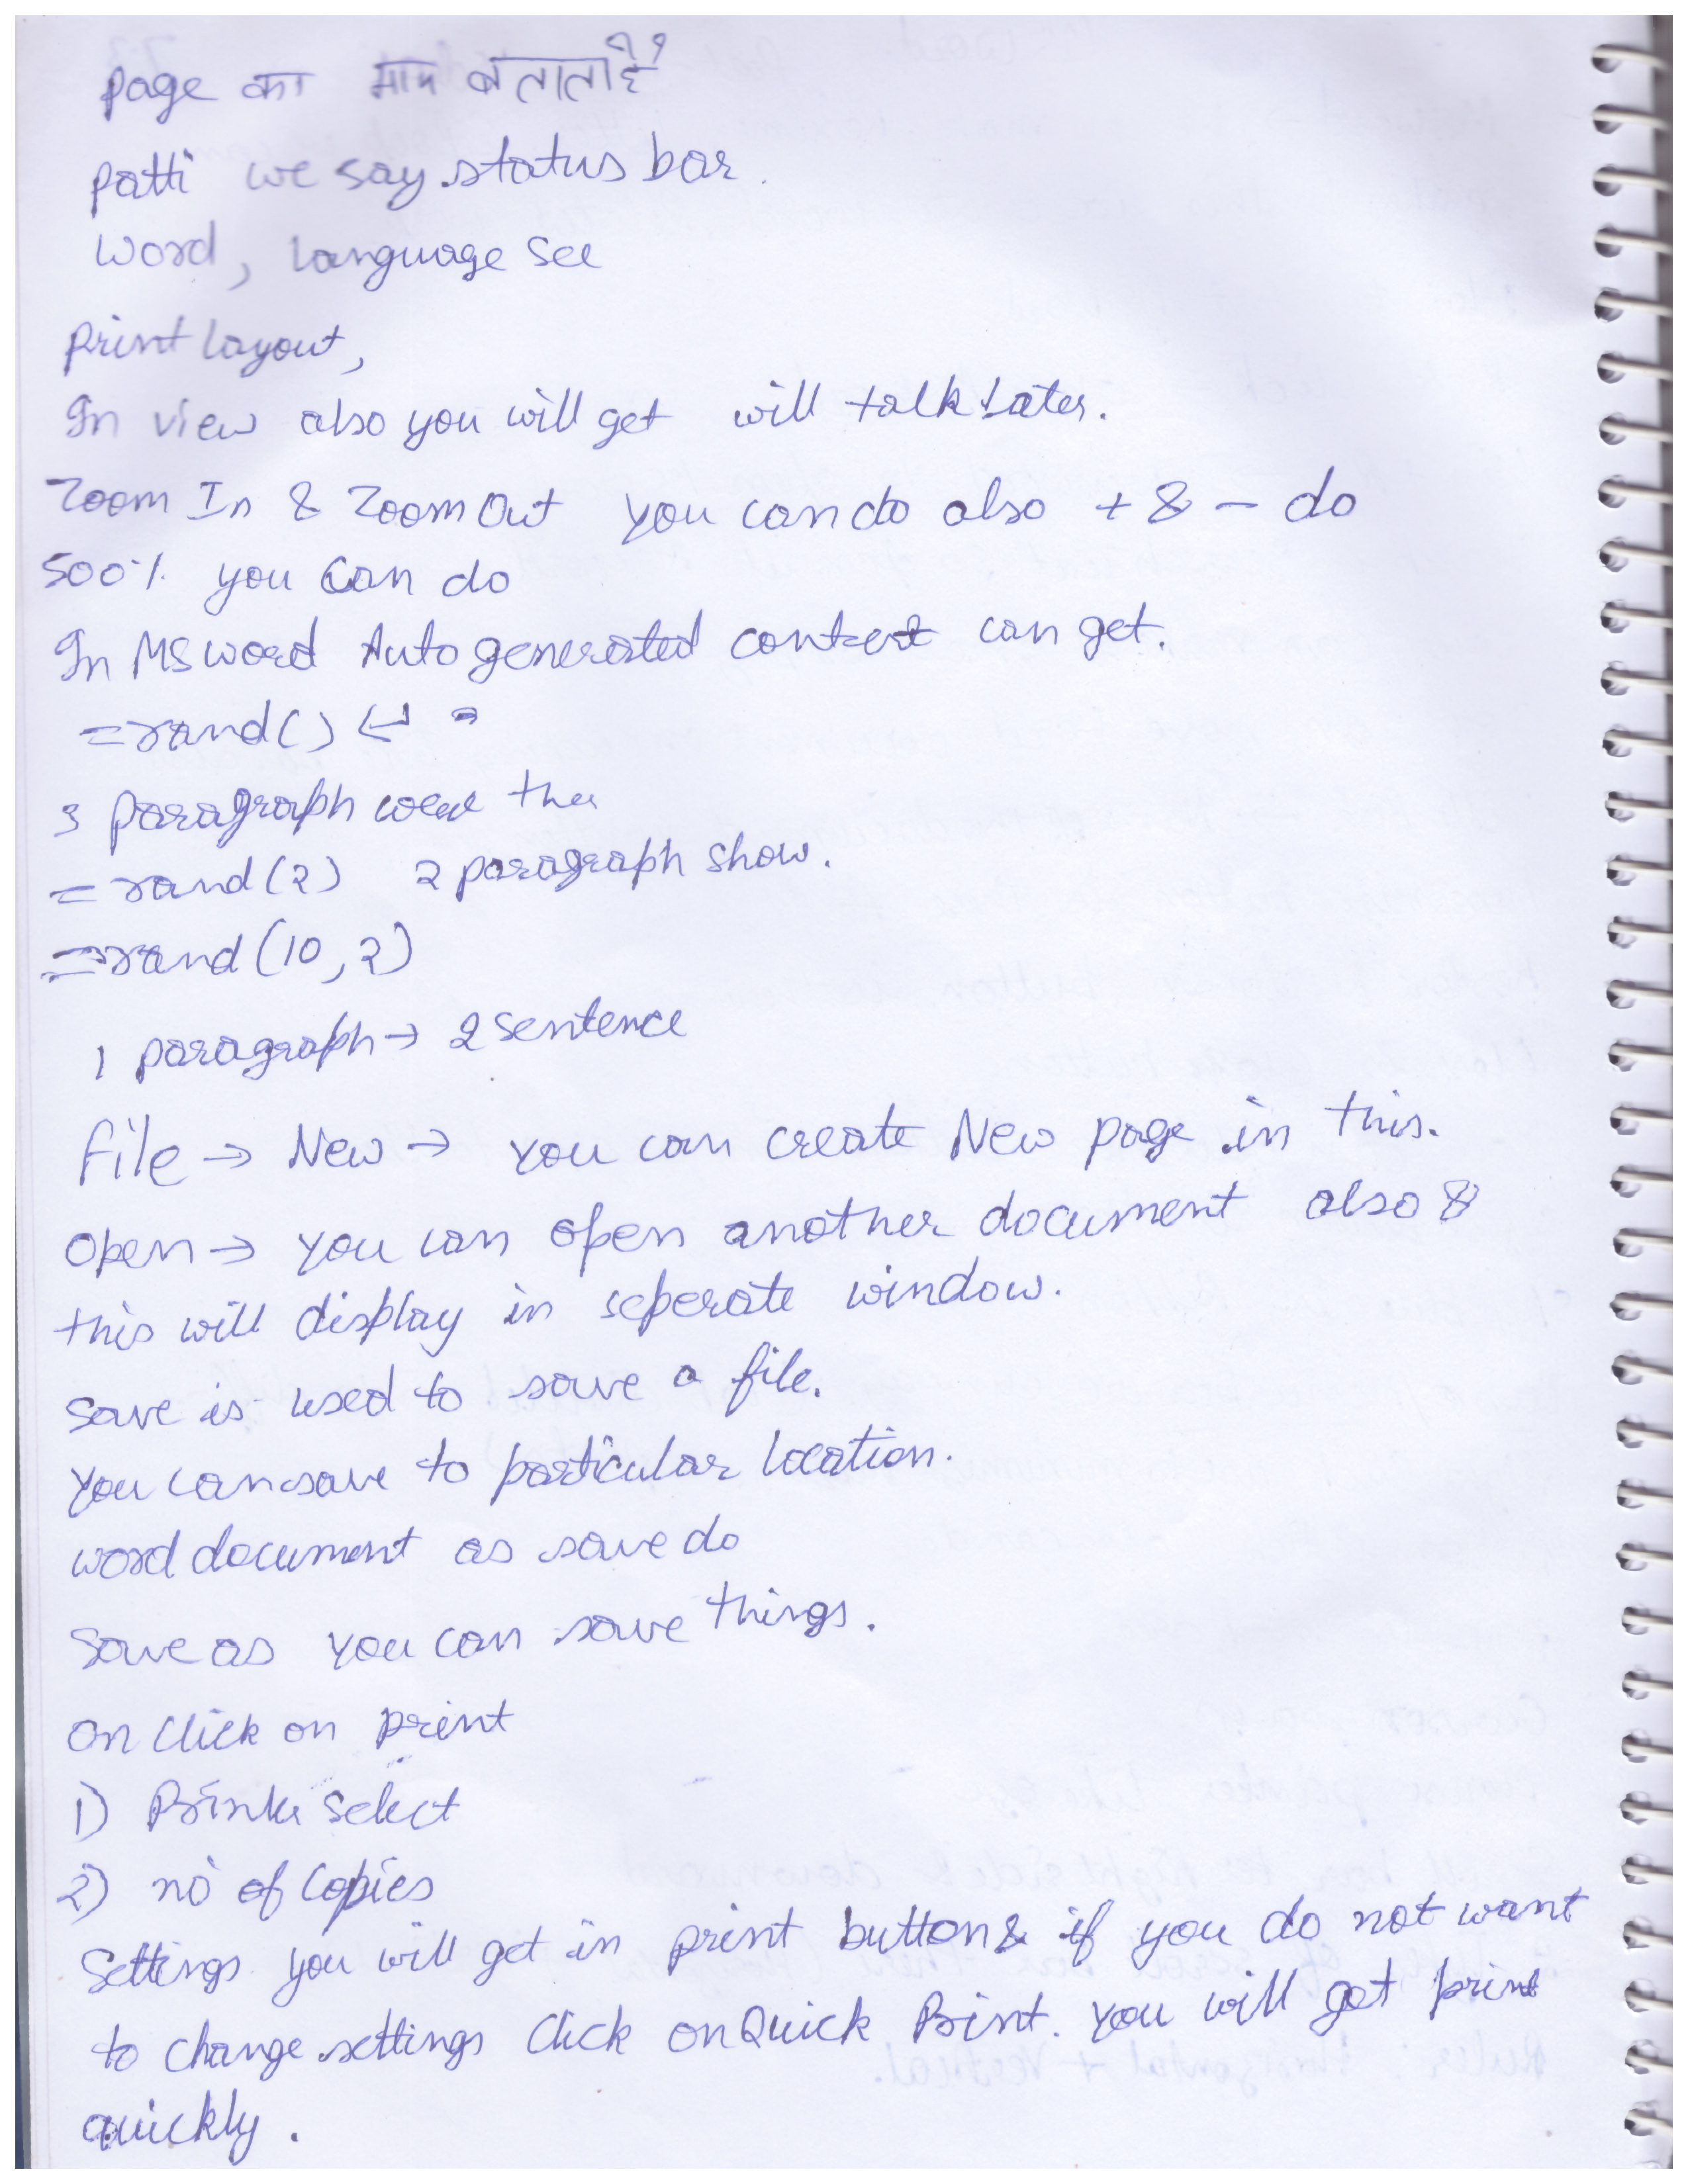 page का माप बताता है
patti we say status bar.
Word, Language see
Print layout,
In view also you will get will talk Later.
Zoom In & Zoom Out you can do also + & - do
500% you can do
In MS word Auto generated content can get.
=rand() ↵
3 paragraph
=rand(2) 2 paragraph show.
=rand(10,2)
1 paragraph → 2 sentence
File → New → You can create New page in this.
Open → You can open another document also &
this will display in seperate window.
Save is used to save a file.
You can save to particular location.
word document as save do
Save as you can save things.
On Click on print
1) Printer select
2) no of Copies
Settings you will get in print button & if you do not want
to change settings Click on Quick Print. You will get print
quickly.